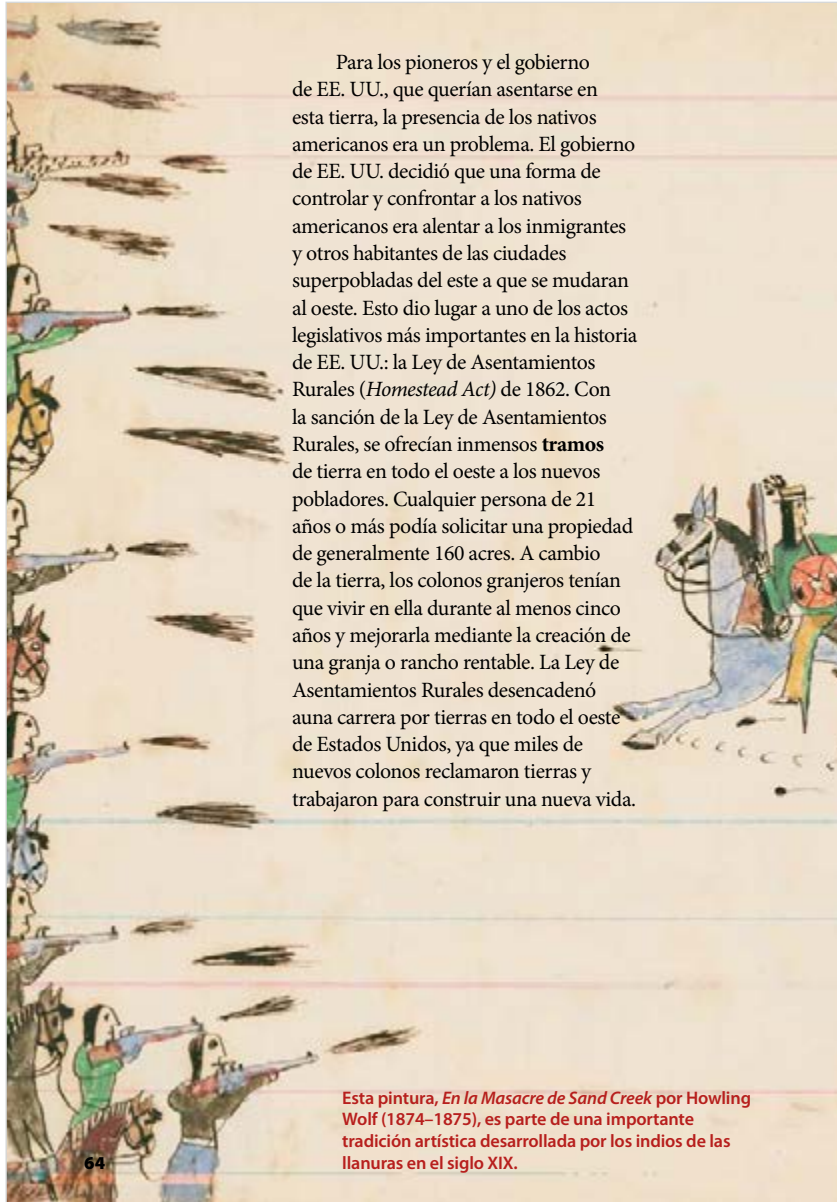 Para los pioneros y el gobierno
de EE. UU., que querían asentarse en
esta tierra, la presencia de los nativos
americanos era un problema. El gobierno
de EE. UU. decidió que una forma de
controlar y confrontar a los nativos
americanos era alentar a los inmigrantes
y otros habitantes de las ciudades
superpobladas del este a que se mudaran
al oeste. Esto dio lugar a uno de los actos
legislativos más importantes en la historia
de EE. UU.: la Ley de Asentamientos
Rurales (Homestead Act) de 1862. Con
la sanción de la Ley de Asentamientos
Rurales, se ofrecían inmensos tramos
de tierra en todo el oeste a los nuevos
pobladores. Cualquier persona de 21
años o más podía solicitar una propiedad
de generalmente 160 acres. A cambio
de la tierra, los colonos granjeros tenían
que vivir en ella durante al menos cinco
años y mejorarla mediante la creación de
una granja o rancho rentable. La Ley de
Asentamientos Rurales desencadenó
auna carrera por tierras en todo el oeste
de Estados Unidos, ya que miles de
nuevos colonos reclamaron tierras y
trabajaron para construir una nueva vida.
Esta pintura, En la Masacre de Sand Creek por Howling
Wolf (1874–1875), es parte de una importante
tradición artística desarrollada por los indios de las
llanuras en el siglo XIX.
64